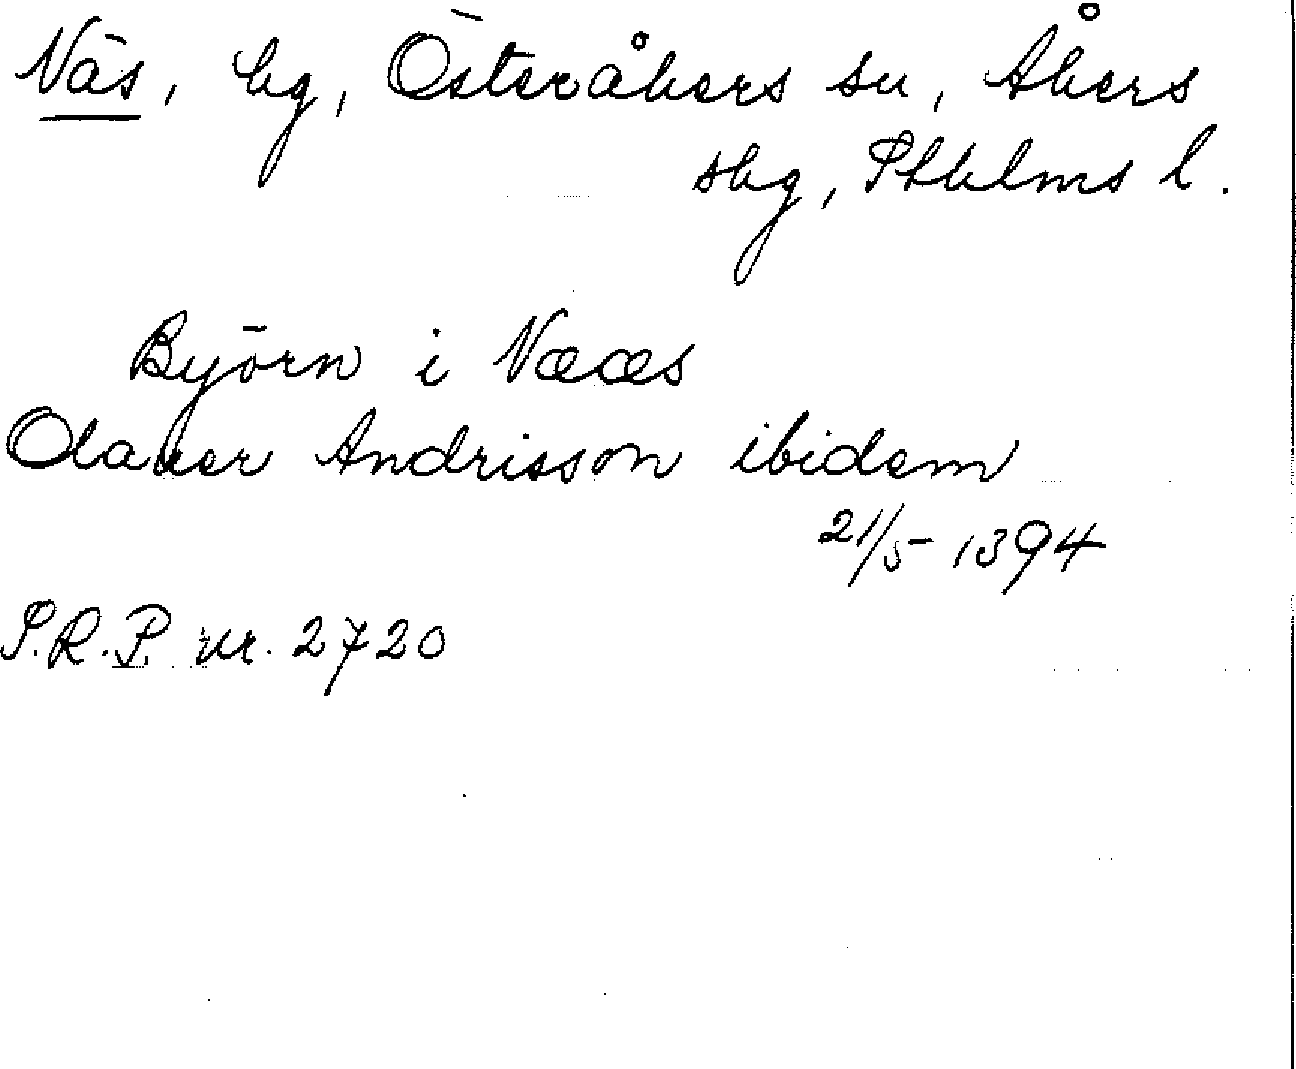 Näs, by, Österåkers sn, Åkers
skg, Sthlms l.
Byörn i Nææs
Olauer Andrisson ibidem
21/5 1394
S.R.P. nr. 2720